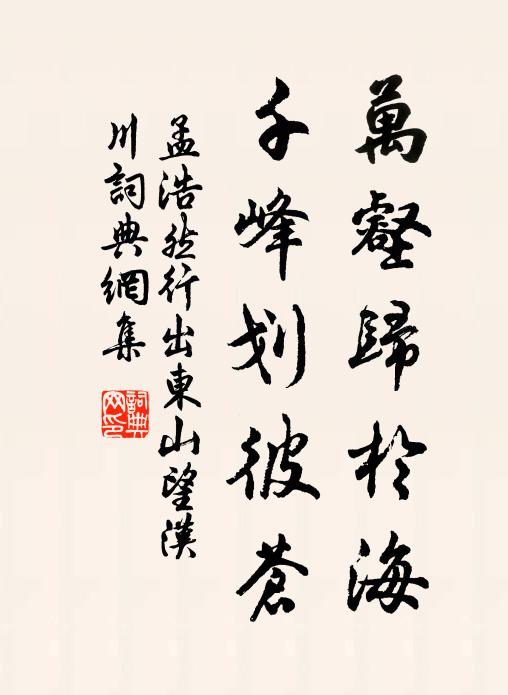 萬壑歸於海
千峰划彼蒼
孟浩然行出東山望漢
川詞典網集
詞典
网印